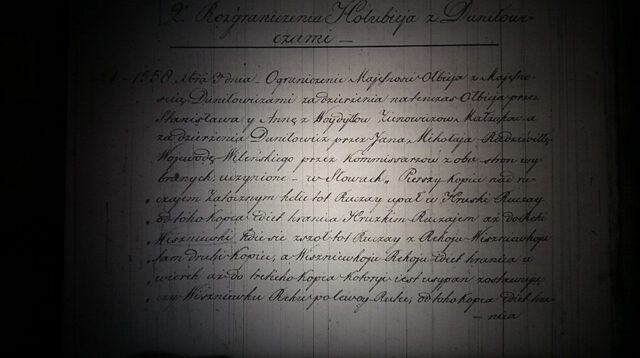 Z Rozgraniczenia Hołubicja z Duniłowi-
czami —
1558 Abra 3 dnia — Ograniczenie Majętnosci Olbieja z Majętno-
scią Duniłowiczami za dzierżenia natenczas Olbieja przez
Stanisława y Annę z Woydyłow Zenowiczow Małżąkow a
za dzierżenia Duniłowicz przez Jana Mikołaja Radziwiłłę
Wojewodę Wileńskiego przez Kommissarzow z obu stron wy-
branych, uczynione — w Słowach „ Pierszy kopiec nad ru-
czajem Zatocznym hdie tot Ruczay upał w Hruski Ruczay
od toho kopca idiet hranica Hruzkim Ruczajem aż do Reki
Wiszniewki hdie sie zszoł tot Ruczay z Rekoju Wiszniewkoju
tam druhi kopiec, a Wiszniewkoju Rekoju idiet hranica u
wierch aż do tretioho kopca kotoryi iest usypan zostawuju
czy Wiszniewku Reku po lewoy Rucie, od toho kopca idiet hra-
— nica